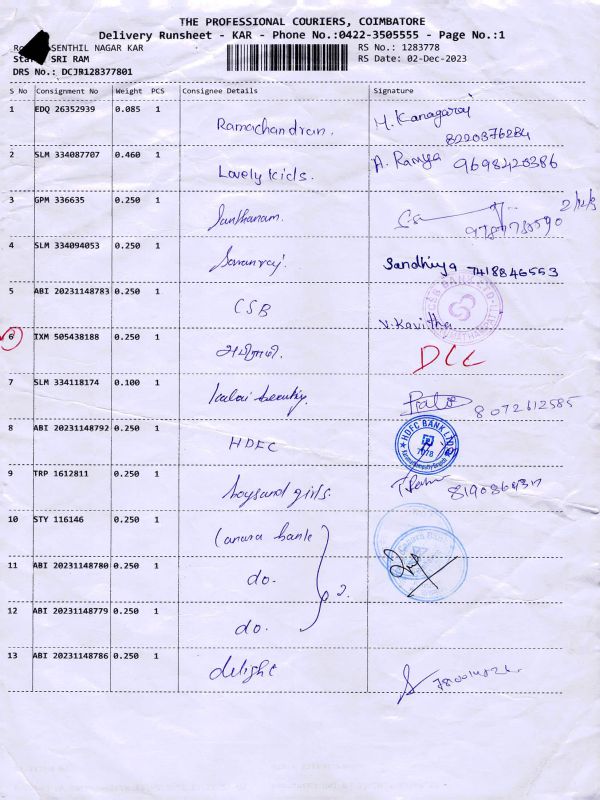 THE PROFESSIONAL COURIERS, COIMBATORE
Delivery Runsheet - KAR - Phone No.:0422-3505555 - Page No.:1
SENTHIL NAGAR KAR RS No.: 1283778
SRI RAM RS Date: 02-Dec-2023
DRS No.: DCJB128377801
S No Consignment No Weight PCS Consignee Details Signature
1 EDQ 26352939 0.085 1 Ramachandran. H. Kanagaraj
8220376284
2 SLM 334087707 0.460 1 Lovely kids. A. Ramya 9698420386
3 GPM 336635 0.250 1 Santhanam.
4 SLM 334094053 0.250 1 Saranraj. Sandhiya 7418846553
5 ABI 20231148783 0.250 1 CSB V. Kavitha
6 IXM 505438188 0.250 1 DLC
7 SLM 334118174 0.100 1 kalai beauty. 8072612585
8 ABI 20231148792 0.250 1 HDFC HDFC BANK LTD
9 TRP 1612811 0.250 1 boys and girls.
10 STY 116146 0.250 1 Canara bank Canara Bank
11 ABI 20231148780 0.250 1 do.
12 ABI 20231148779 0.250 1 do.
13 ABI 20231148786 0.250 1 delight